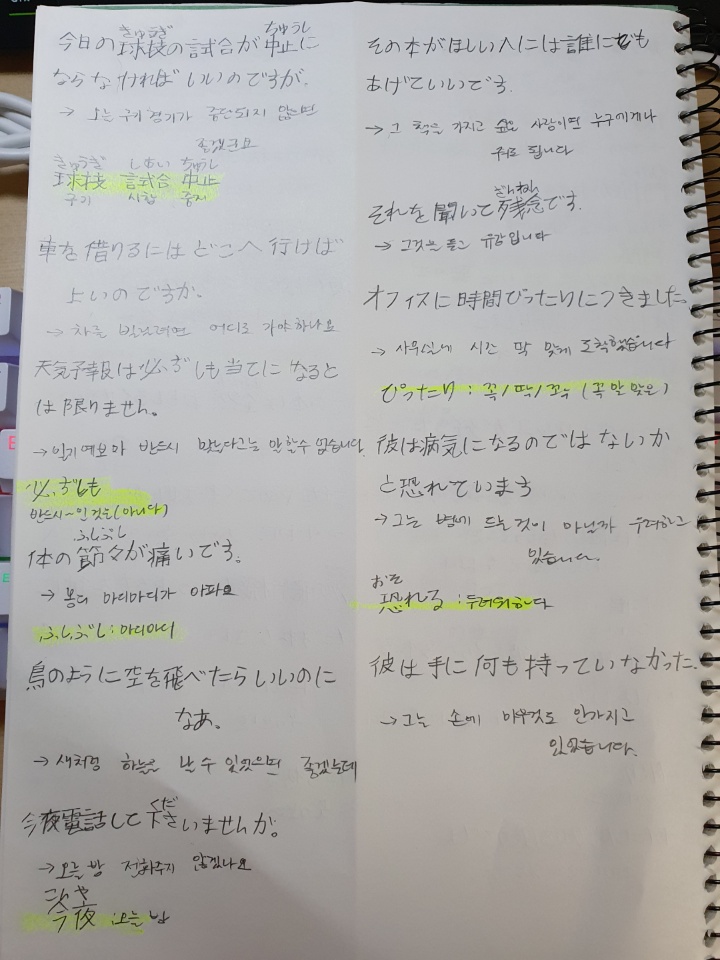 きゅうぎ ちゅうし
今日の球技の試合が中止に
ならなければいいのですが.
→ 오늘 구기 경기가 중단되지 않으면
좋겠군요
きゅうぎ しあい ちゅうし
球技 試合 中止
구기 시합 중지
車を借りるにはどこへ行けば
よいのですか.
→ 차를 빌리려면 어디로 가야하나요
天気予報は必ずしも当てになると
は限りません。
→ 일기예보가 반드시 맞는다고는 말할수 없습니다
必ずしも
반드시~인것은(아니다)
ふしぶし
体の節々が痛いです。
→ 몸의 마디마디가 아파요
ふしぶし : 마디마디
鳥のように空を飛べたらいいのに
なあ。
→ 새처럼 하늘을 날 수 있었으면 좋겠는데
くだ
今夜電話して下さいませんか。
→ 오늘 밤 전화주지 않겠나요
こんや
今夜 : 오늘
その本がほしい人には誰にでも
あげていいです.
→ 그 책을 가지고 싶은 사람이면 누구에게나
줘도 됩니다
ざんねん
それを聞いて残念です.
→ 그것을 듣고 유감입니다
オフィスに時間ぴったりにつきました.
→ 사무실에 시간 딱 맞게 도착했습니다
ぴったり : 꼭/딱/꼬누 (꼭 알맞은)
彼は病気になるのではないか
と恐れています
→ 그는 병에 드는것이 아닐까 우려하고
있습니다.
おそ
恐れる : 두려워하다
彼は手に何も持っていなかった.
→ 그는 손에 아무것도 안가지고
있었습니다.